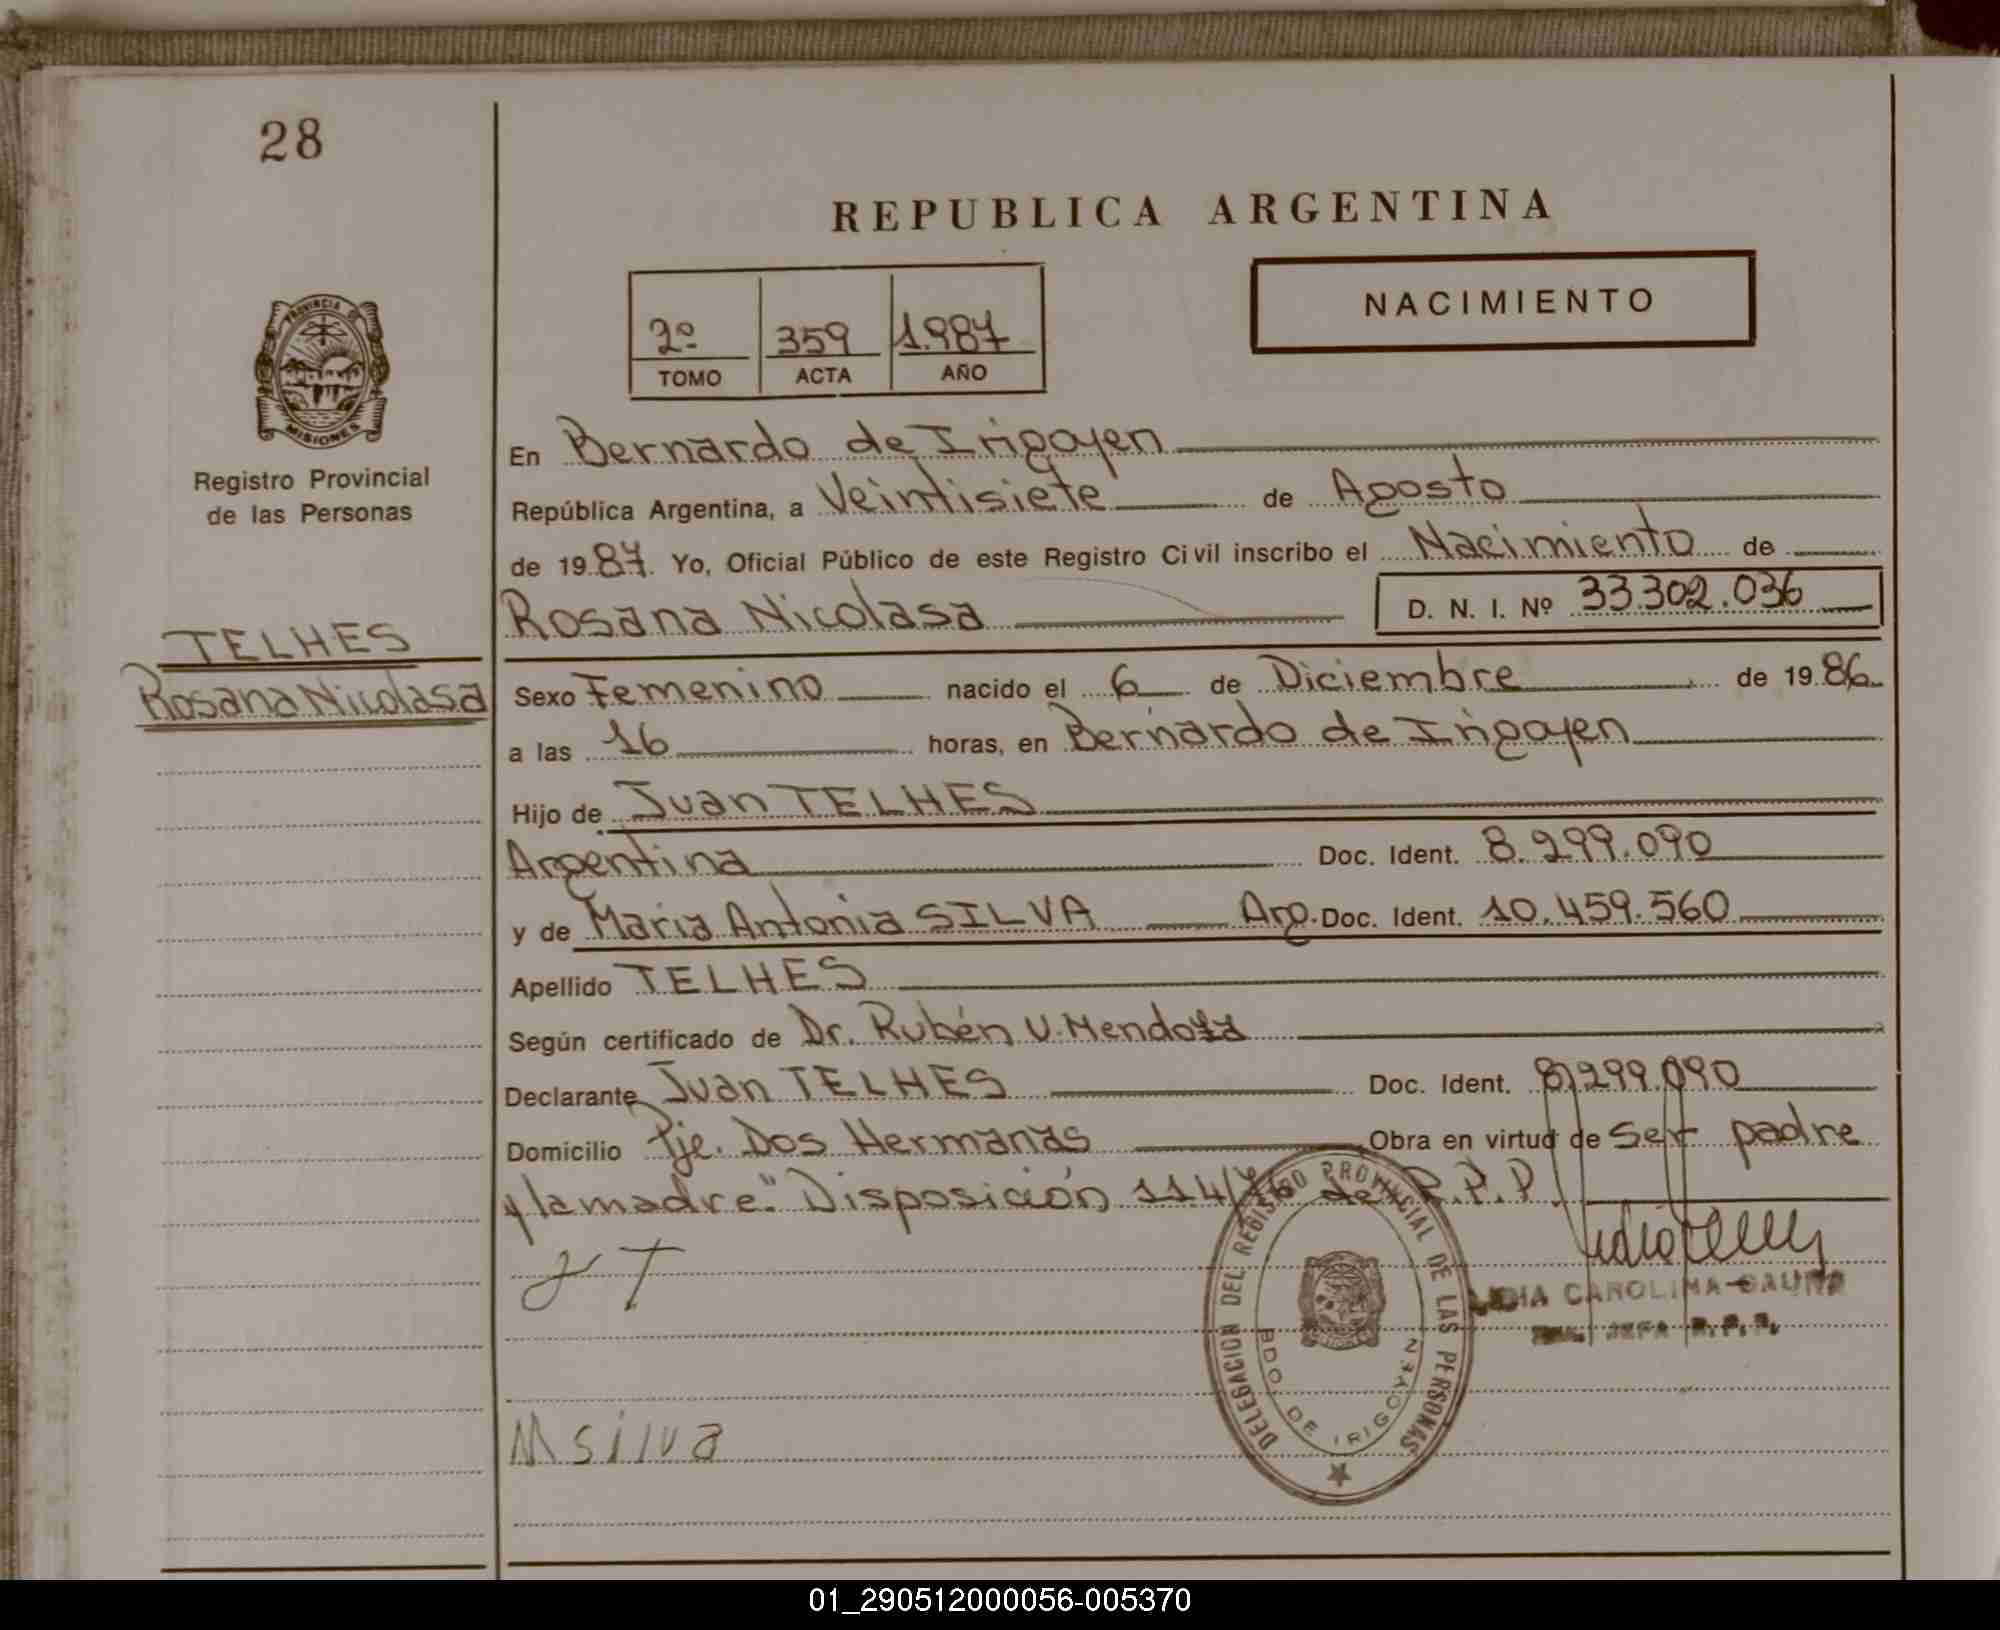 28
REPUBLICA ARGENTINA
NACIMIENTO
2º 359 1.987
TOMO ACTA AÑO
PROVINCIA DE
MISIONES
Registro Provincial
de las Personas
TELHES
Rosana Nicolasa
En Bernardo de Irigoyen
República Argentina, a Veintisiete de Agosto
de 1987. Yo, Oficial Público de este Registro Civil inscribo el Nacimiento de
Rosana Nicolasa D. N. I. Nº 33.302.036
Sexo Femenino nacido el 6 de Diciembre de 1986
a las 16 horas, en Bernardo de Irigoyen
Hijo de Juan TELHES
Argentina Doc. Ident. 8.299.090
y de Maria Antonia SILVA Arg. Doc. Ident. 10.459.560
Apellido TELHES
Según certificado de Dr. Rubén V. Mendoza
Declarante Juan TELHES Doc. Ident. 8.299.090
Domicilio Pje. Dos Hermanas Obra en virtud de ser padre
y la madre." Disposición 114/76 de R.P.P.
J T
LIDIA CAROLINA GAUNA
JEFA R. P. P.
DELEGACION DEL REGISTRO PROVINCIAL DE LAS PERSONAS
BDO. DE IRIGOYEN
M silva
01_290512000056-005370